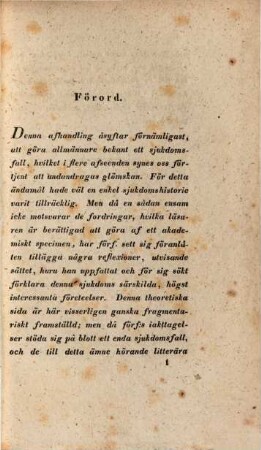 Förord.
Denna afhandling åsyftar förnämligast,
att göra allmännare bekant ett sjukdoms-
fall, hvilket i flere afseenden synes oss för-
tjent att undandragas glömskan. För detta
ändamål hade väl en enkel sjukdomshistorie
varit tillräcklig. Men då en sådan ensam
icke motsvarar de fordringar, hvilka läsa-
ren är berättigad att göra af ett akade-
miskt specimen, har förf. sett sig föranlå-
ten tillägga några reflexioner, utvisande
sättet, huru han uppfattat och för sig sökt
förklara denna sjukdoms särskilda, högst
interessanta företeelser. Denna theoretiska
sida är här visserligen ganska fragmenta-
riskt framställd; men då förf:s iakttagel-
ser stöda sig på blott ett enda sjukdomsfall,
och de till detta ämne hörande litterära
1